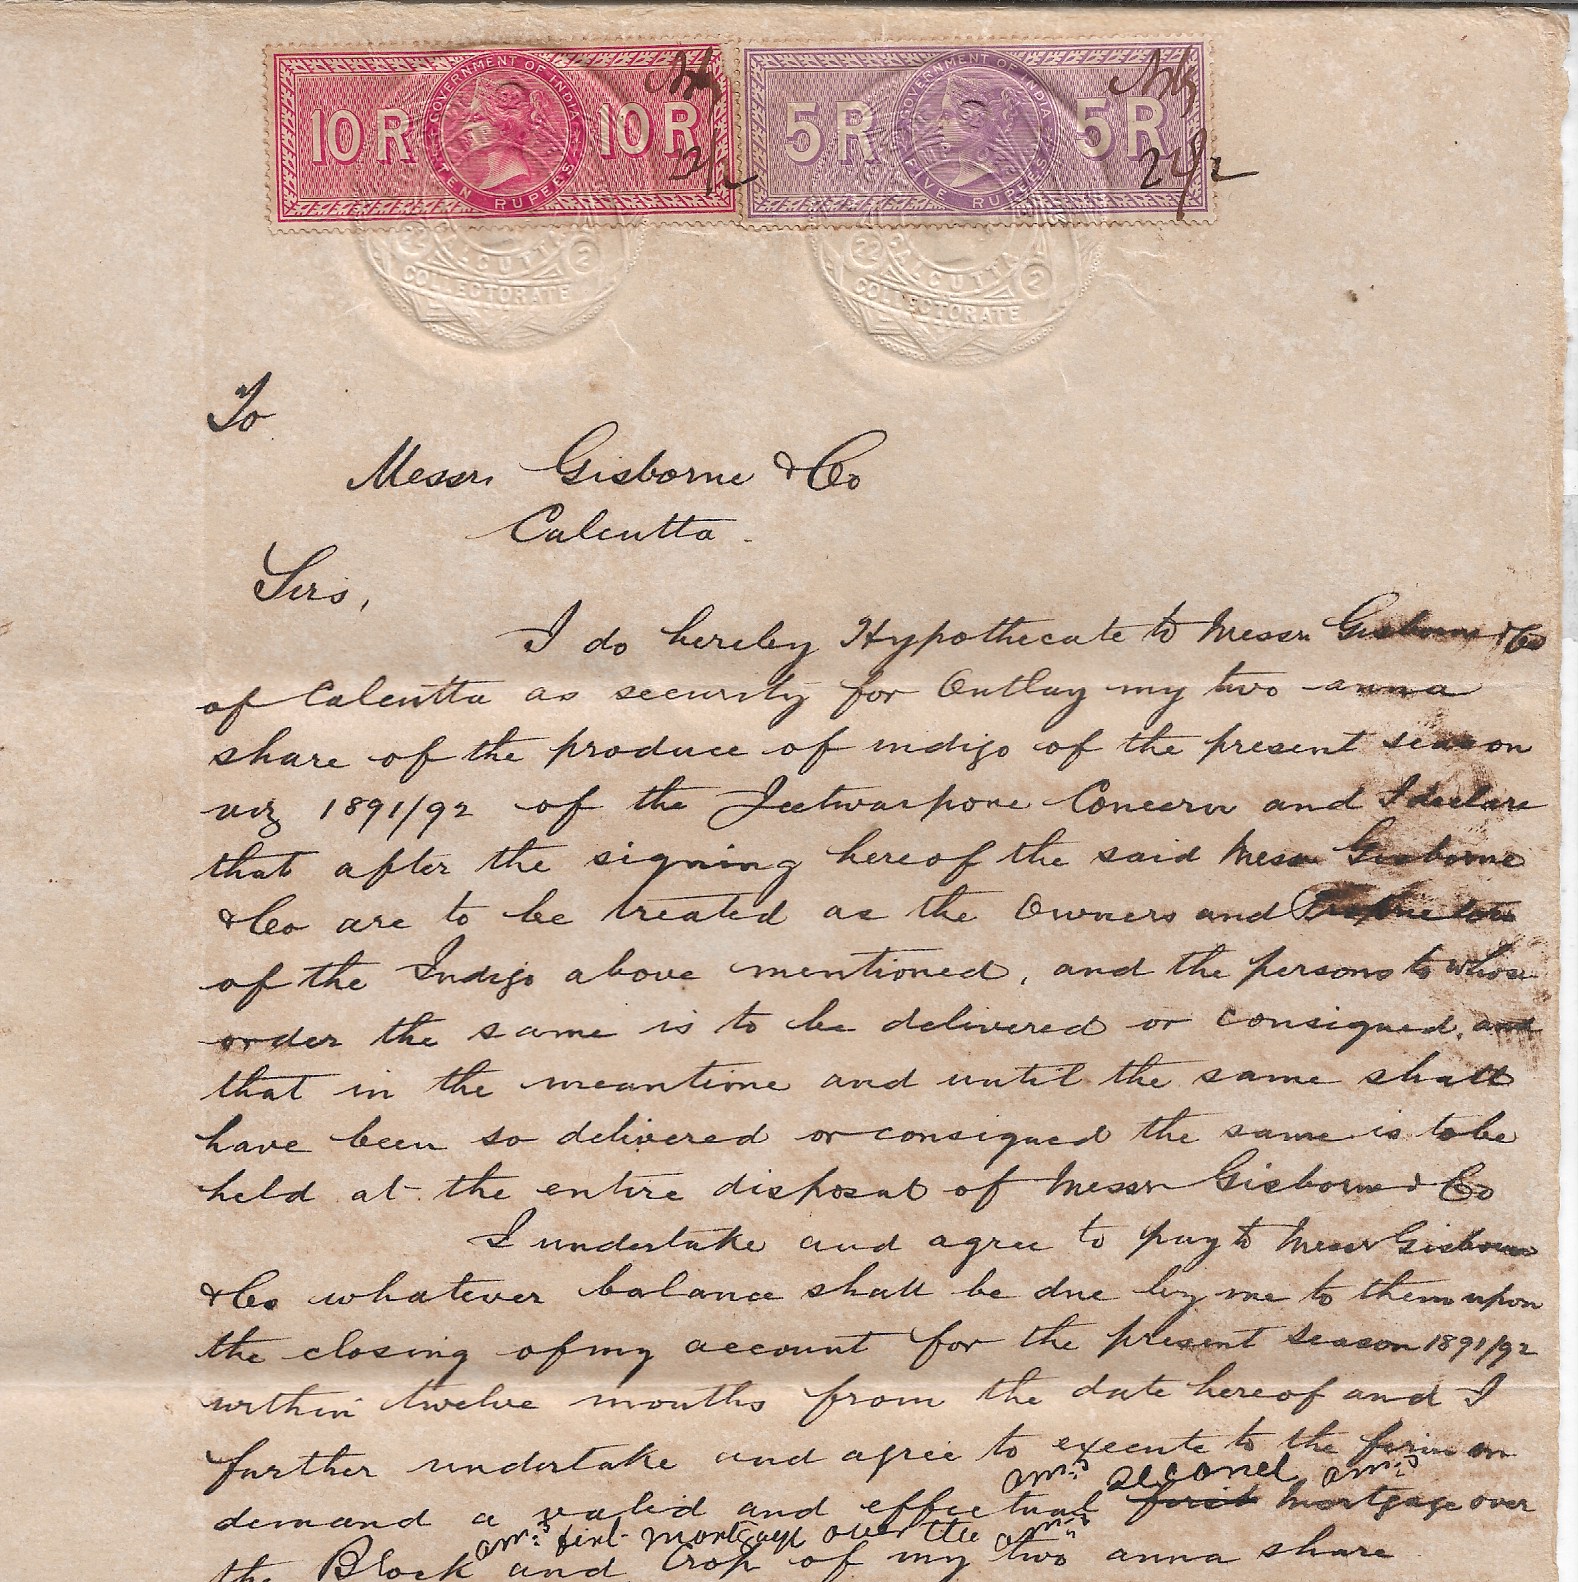 10 R GOVERNMENT OF INDIA TEN RUPEES 10 R
5 R GOVERNMENT OF INDIA FIVE RUPEES 5 R
22/2
22/2
22 CALCUTTA 2
COLLECTORATE
22 CALCUTTA 2
COLLECTORATE
To
Messrs Gisborne & Co
Calcutta.
Sirs,
I do hereby Hypothecate to Messrs Gisborne & Co
of Calcutta as security for Outlay my two anna
share of the produce of indigo of the present season
viz 1891/92 of the Jeetwarpore Concern and I declare
that after the signing hereof the said Messrs Gisborne
& Co are to be treated as the Owners and Proprietors
of the Indigo above mentioned, and the persons to whose
order the same is to be delivered or consigned, and
that in the meantime and until the same shall
have been so delivered or consigned the same is to be
held at the entire disposal of Messrs Gisborne & Co
I undertake and agree to pay to Messrs Gisborne
& Co whatever balance shall be due by me to them upon
the closing of my account for the present season 1891/92
within twelve months from the date hereof and I
further undertake and agree to execute to the firm on
second
demand a valid and effectual first Mortgage over
first mortgage over the
the Block and Crop of my two anna share